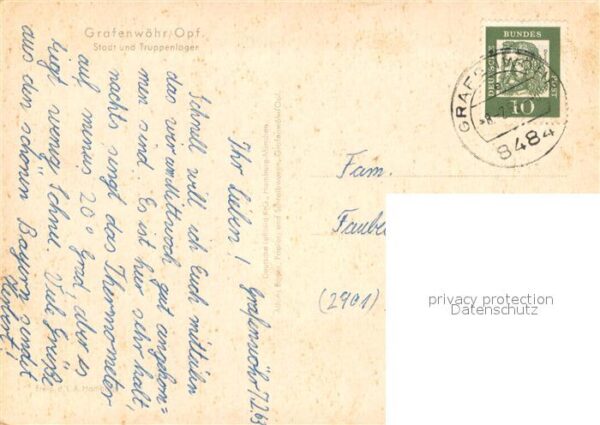 Grafenwöhr/Opf.
Stadt und Truppenlager
Ihr Lieben! Grafenwöhr, 7.2.63
Schnell will ich Euch mitteilen
das wir am Mittwoch gut angekom=
men sind. Es ist hier sehr kalt,
nachts singt das Thermometer
auf minus 20° Grad, aber es
liegt wenig Schnee. Viele Grüße
aus den schönen Bayern sendet
Fam.
(2901)
DEUTSCHE
BUNDES
POST
10
8484
privacy protection
Datenschutz